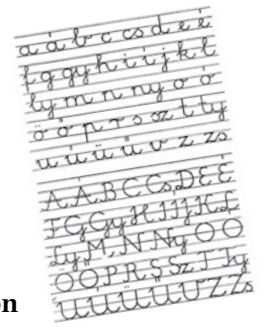 a á b c cs d e é
f g gy h i í j k l
ly m n ny o ó
ö ő p r s sz t ty
u ú ü ű v z zs
A Á B C Cs D E É
F G Gy H I Í J K L
Ly M N Ny O Ó
Ö Ő P R S Sz T Ty
U Ú Ü Ű V Z Zs
on